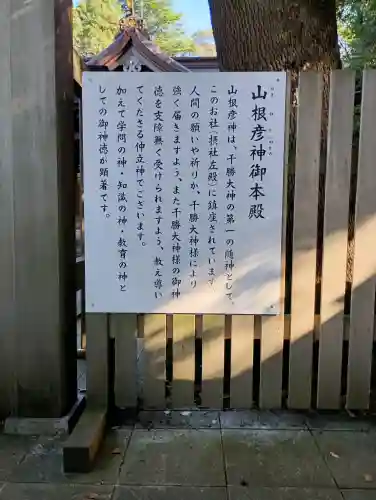 山根彦神御本殿
やまねひこかみ
山根彦神は、千勝大神の第一の随神として、
このお社（摂社左殿）に鎮座されています
人間の願いや祈りが、千勝大神様により
強く届きますよう、また千勝大神様の御神
徳を支障無く受けられますよう、教え導い
てくださる仲立神でございます。
加えて学問の神・知識の神・教育の神と
しての御神徳が顕著です。